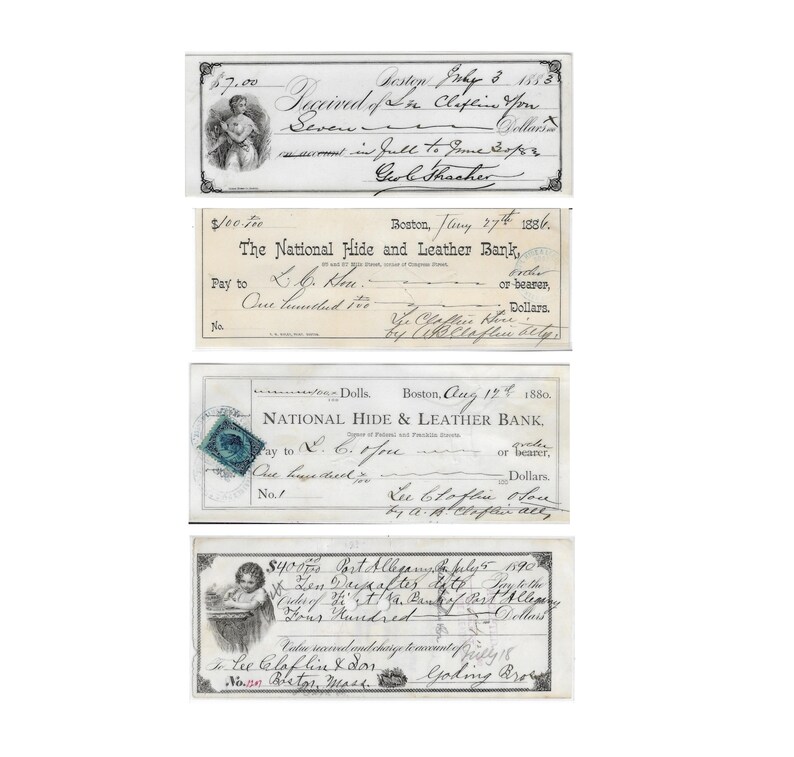 $7.00 Boston July 3 1883
Received of Lee Claflin & Son
Seven Dollars
on account in full to June 30/83
Geo C Thacher
$100.00 Boston, Jany 27th 1886.
The National Hide and Leather Bank,
85 and 87 Milk Street, corner of Congress Street.
order
Pay to L. C. & Son or bearer,
One hundred Dollars.
Lee Claflin & Son
No. by A B Claflin atty.
100 Dolls. Boston, Aug 12th 1880.
NATIONAL HIDE & LEATHER BANK,
Corner of Federal and Franklin Streets.
order
Pay to L. C. & Son or bearer,
One hundred Dollars.
No. 1 Lee Claflin & Son
by A. B Claflin atty
$400 Port Allegany, Pa July 5 1890
Ten Days after date Pay to the
Order of First Na. Bank of Port Allegany
Four Hundred Dollars
Value received and charge to account of
July 18
To Lee Claflin & Son
No. 1207 Boston, Mass. Goding Bros